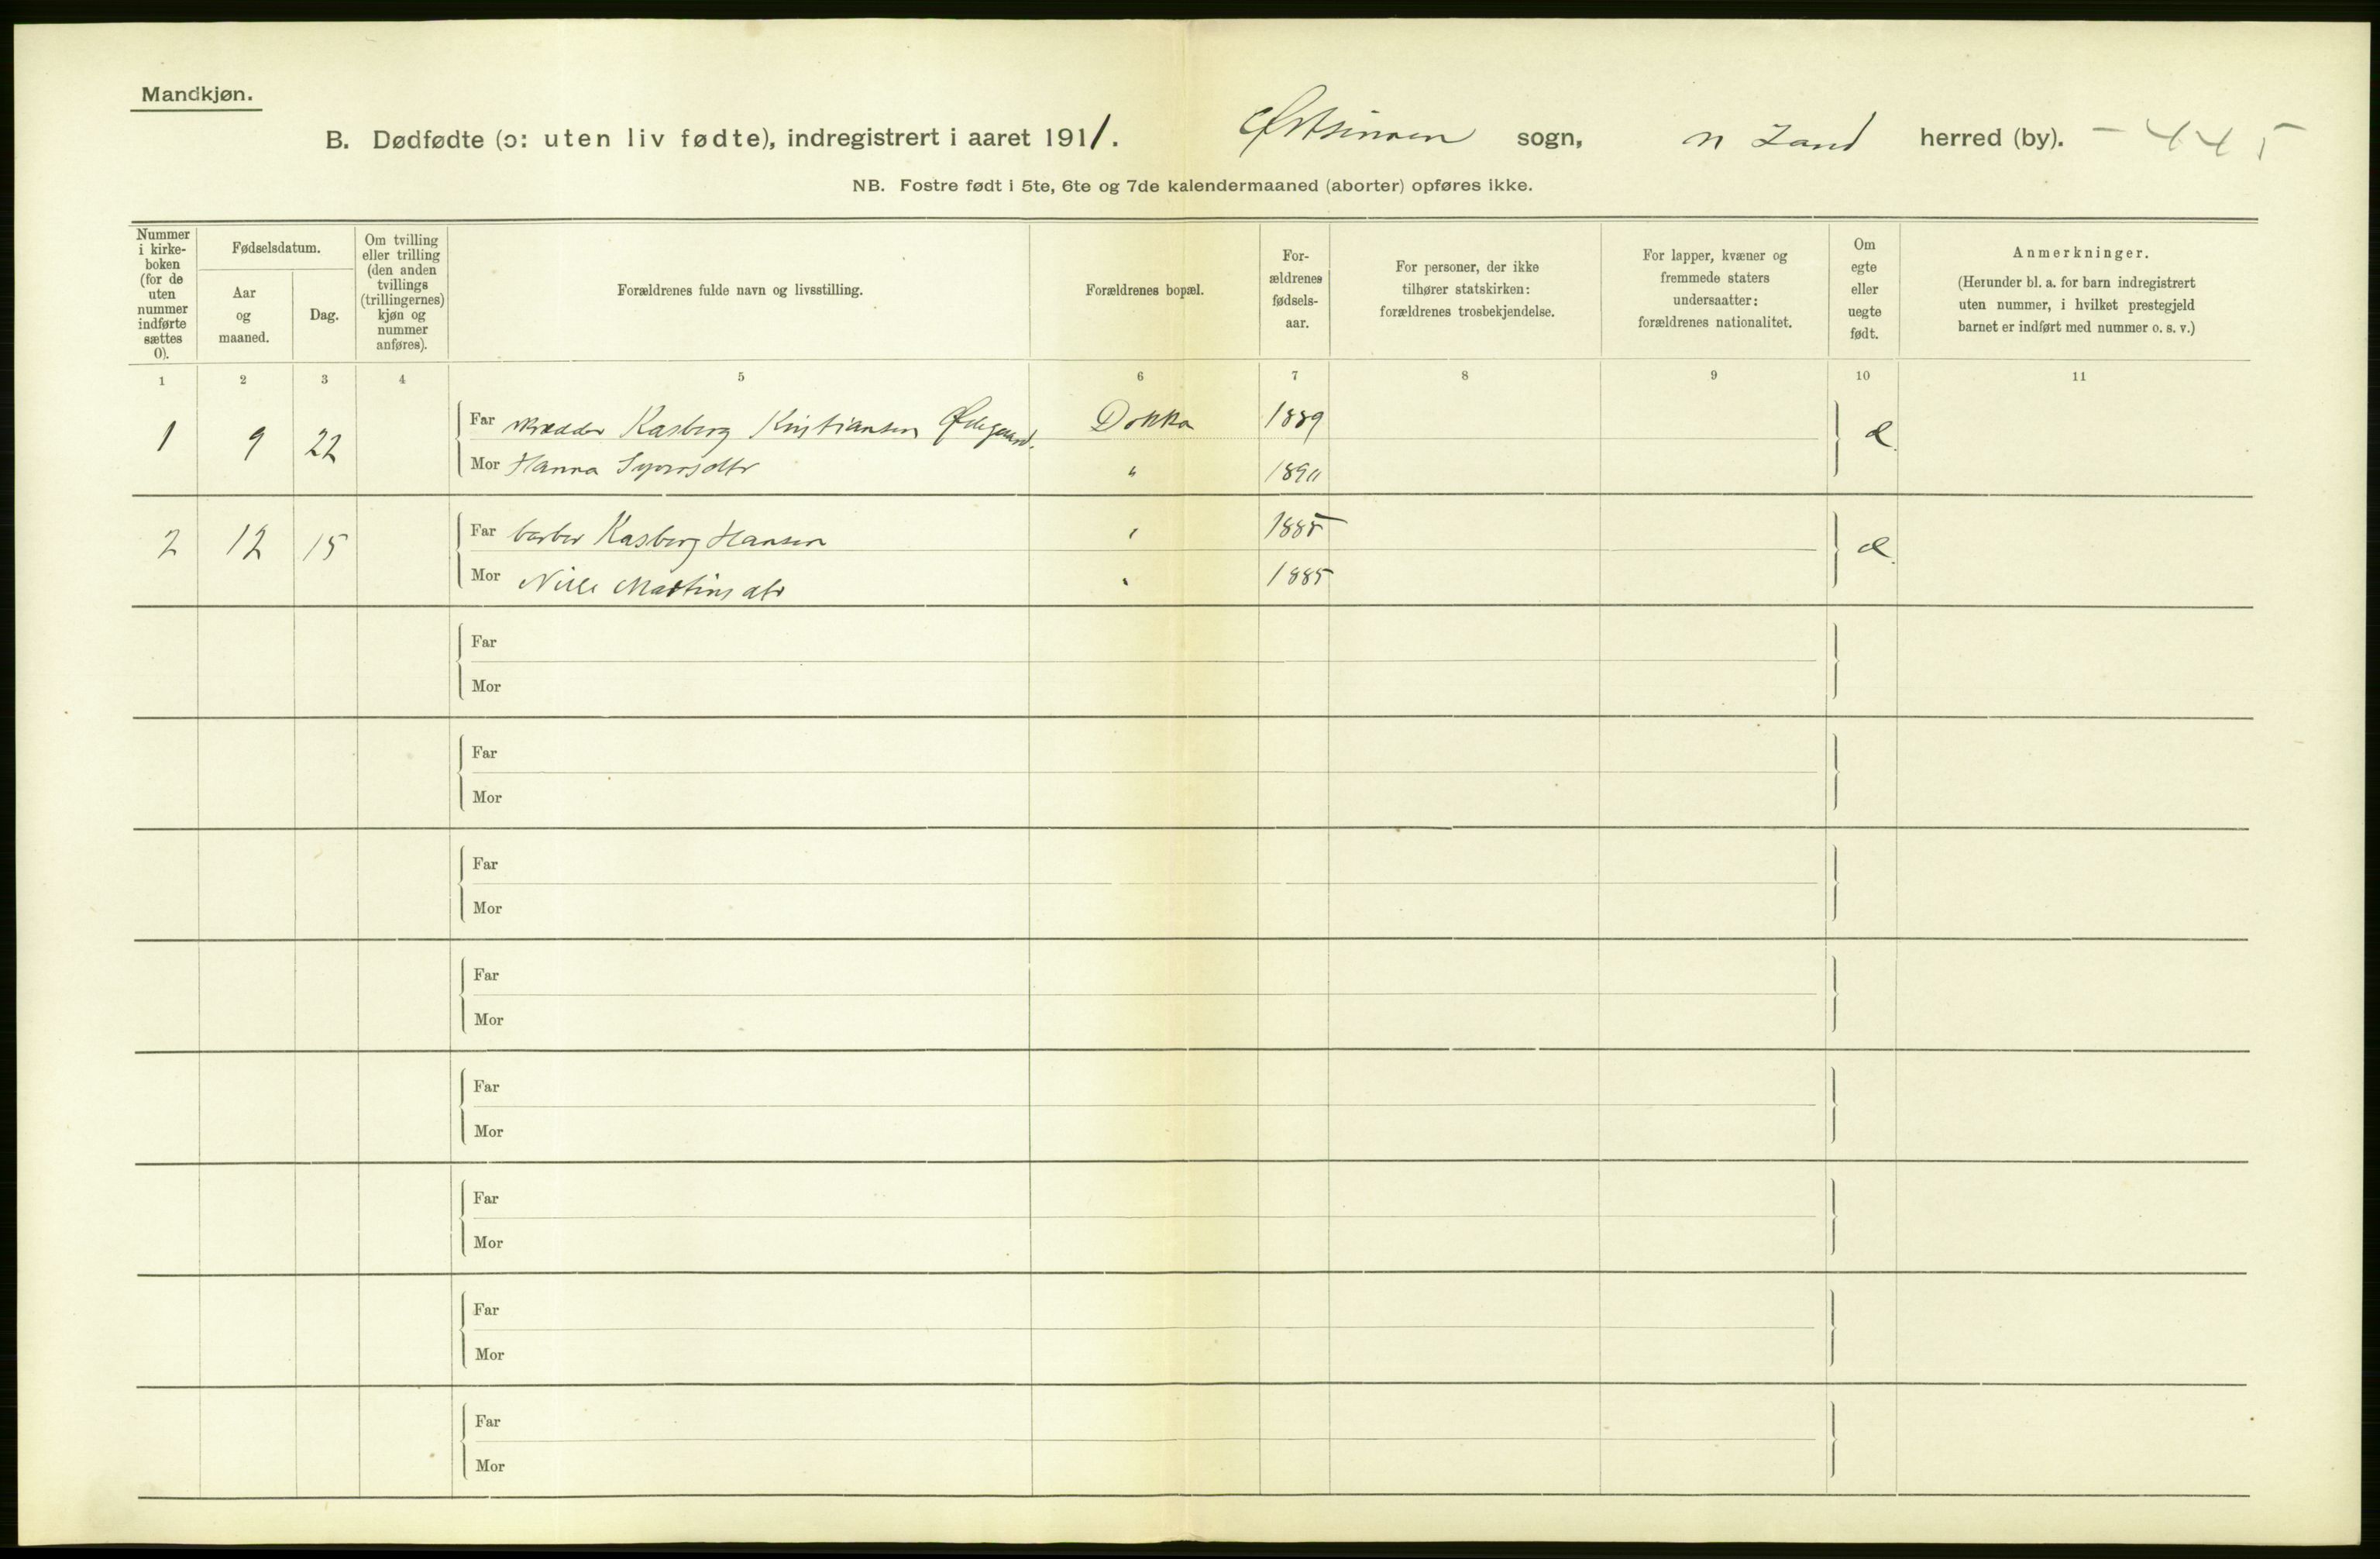 Mandkjøn.
B. Dødfødte (ɔ: uten liv fødte), indregistrert i aaret 1911. Østsinnen sogn, n Land herred (by). – 445
NB. Fostre født i 5te, 6te og 7de kalendermaaned (aborter) opføres ikke.
Nummer
i kirke-
boken
(for de
uten
nummer
indførte
sættes
0).
Fødselsdatum.
Aar
og
maaned.
Dag.
Om tvilling
eller trilling
(den anden
tvillings
(trillingernes)
kjøn og
nummer
anføres).
Forældrenes fulde navn og livsstilling.
Forældrenes bopæl.
For-
ældrenes
fødsels-
aar.
For personer, der ikke
tilhører statskirken:
forældrenes trosbekjendelse.
For lapper, kvæner og
fremmede staters
undersaatter:
forældrenes nationalitet.
Om
egte
eller
uegte
født.
Anmerkninger.
(Herunder bl. a. for barn indregistrert
uten nummer, i hvilket prestegjeld
barnet er indført med nummer o. s. v.)
1 2 3 4 5 6 7 8 9 10 11
1 9 22 Far skrædder Kasberg Kristiansen Ødegaard. Dokka 1889 e
Mor Hanna Syversdtr " 1890
2 12 15 Far barber Kasberg Hansen " 1885 e
Mor Martinsdtr " 1885
Far
Mor
Far
Mor
Far
Mor
Far
Mor
Far
Mor
Far
Mor
Far
Mor
Far
Mor